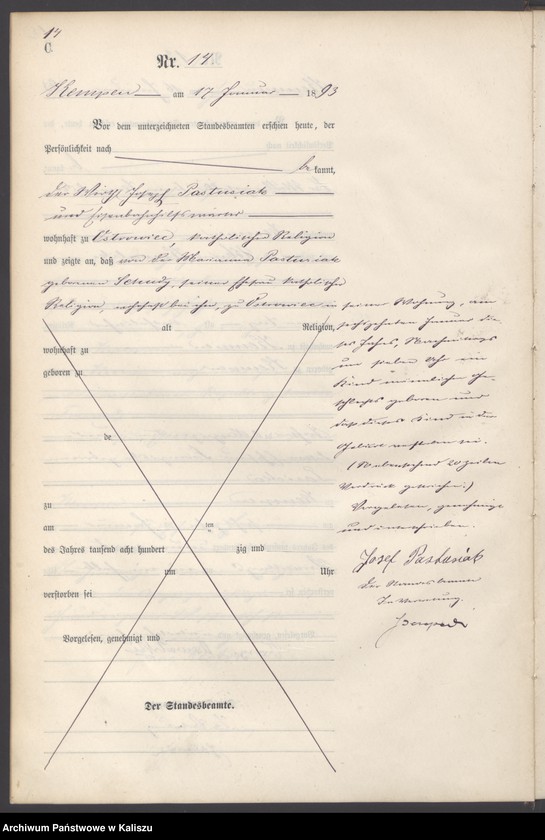 14
C.
Nr. 14
Kempen am 17 Januar 1893
Vor dem unterzeichneten Standesbeamten erschien heute, der
Persönlichkeit nach
be kannt,
der Wirth Josef Pastusiak
und Eisenbahnhilfswärter
wohnhaft zu Ostrowiec, katholischer Religion
und zeigte an, daß von der Marianna Pastusiak
geborenen seiner Ehefrau katholischer
Religion, wohnhaft bei ihm, zu Ostrowiec in seiner Wohnung, am
alt Religion,
wohnhaft zu
geboren zu
de
zu
am ten
des Jahres tausend acht hundert zig und
um Uhr
verstorben sei
Vorgelesen, genehmigt und
Der Standesbeamte.
sechszehnten Januar die-
ses Jahres, Nachmittags
um sieben Uhr ein
Kind männlichen Ge-
schlechts geboren und
daß dieses Kind in der
Geburt verstorben sei.
(Nebenstehend 20 Zeilen
Vordruck gestrichen.)
Vorgelesen, genehmigt
und unterschrieben.
Josef Pastusiak
Der Standesbeamte
In Vertretung.
Archiwum Państwowe w Kaliszu